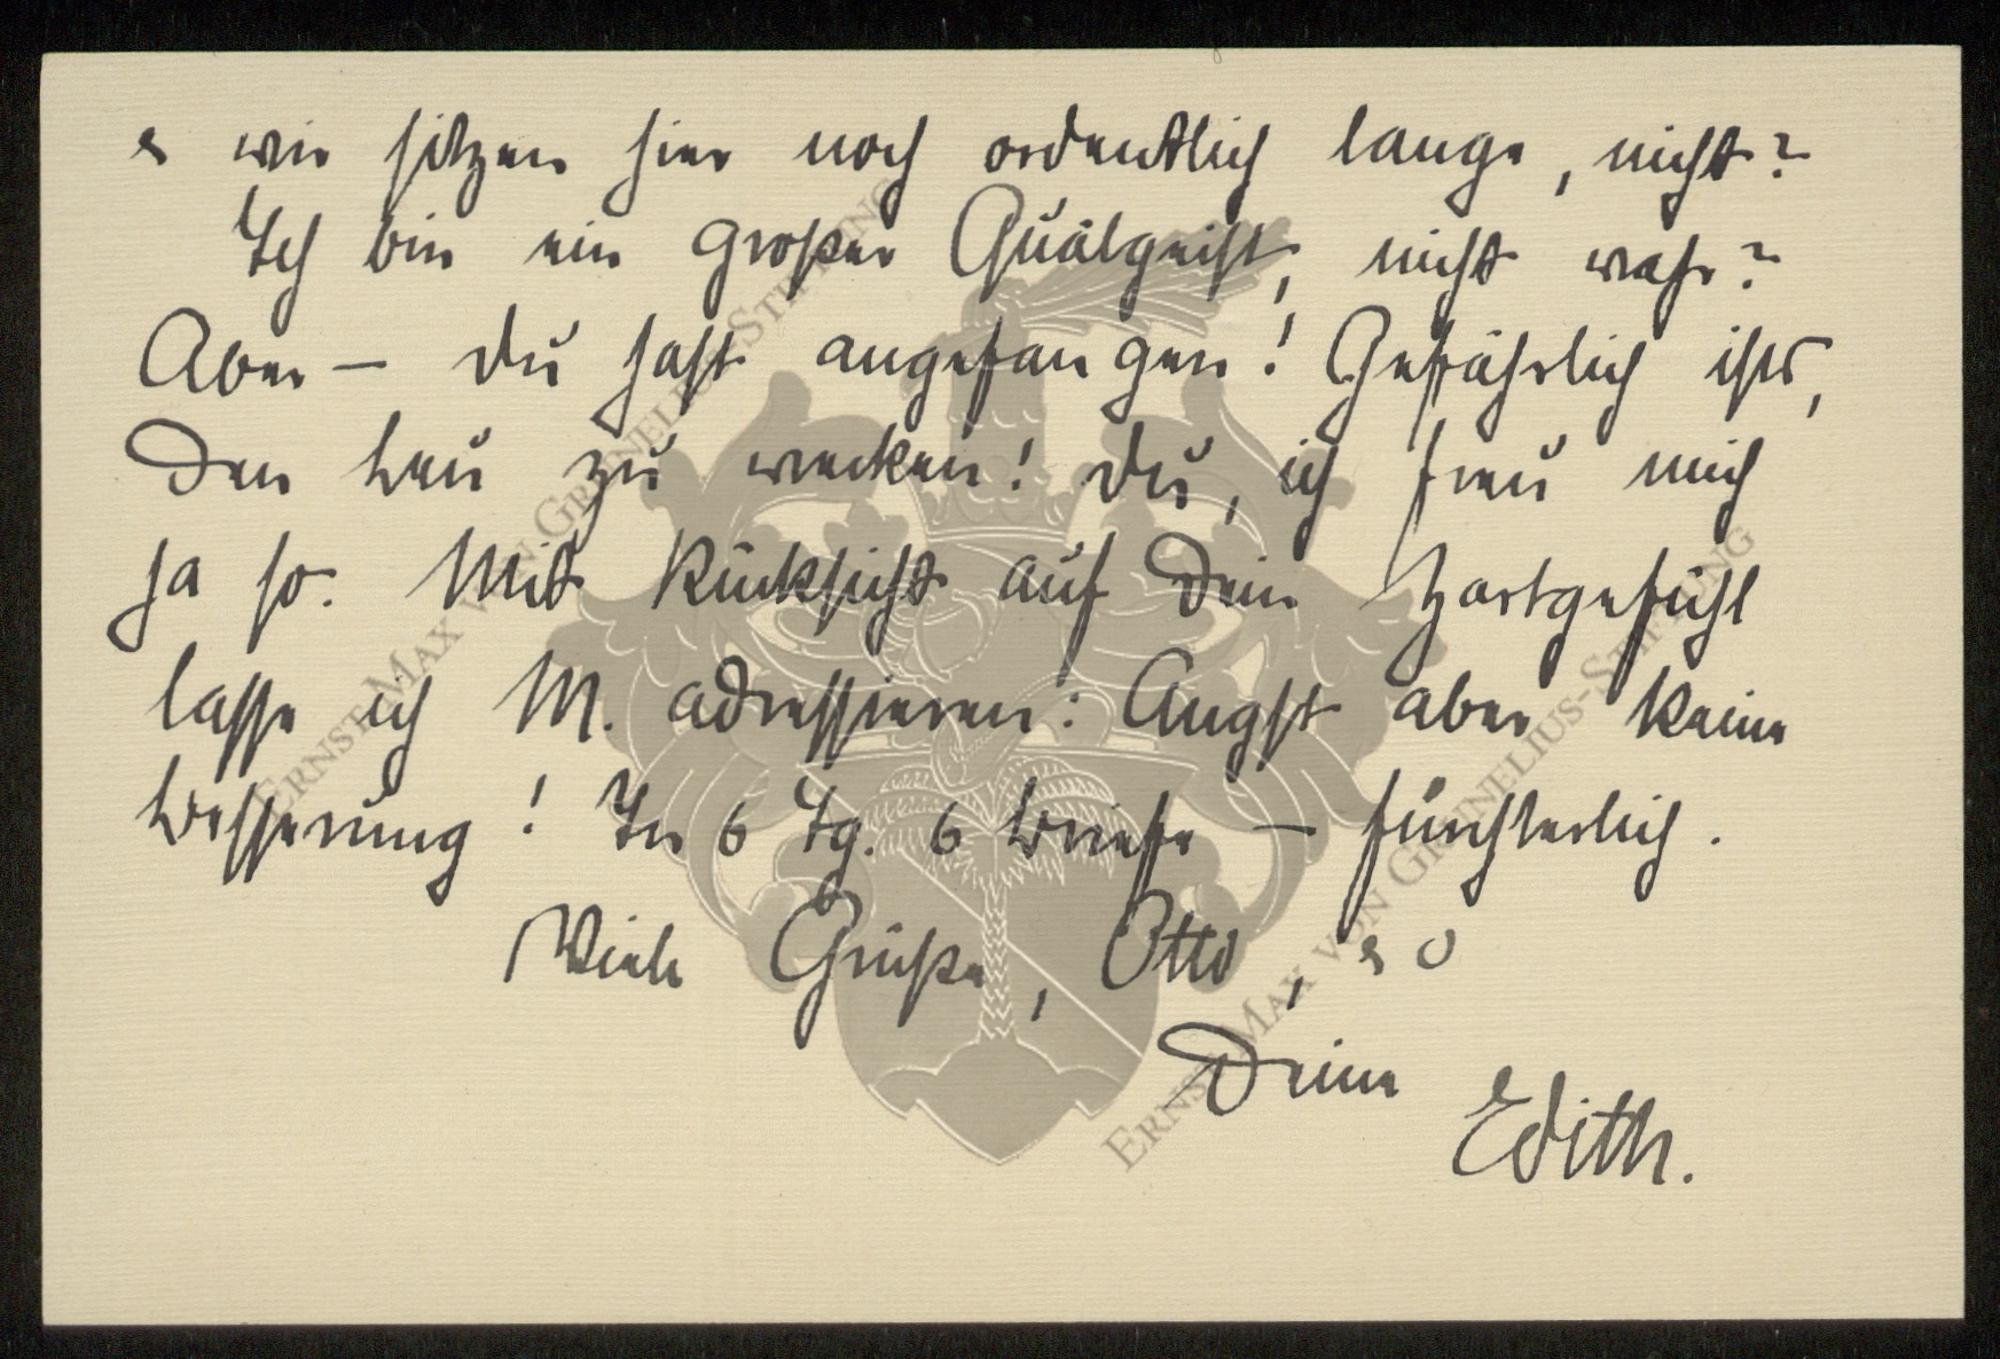 & wir sitzen hier noch ordentlich lange, nicht?
Ich bin ein großer Quälgeist, nicht wahr?
Aber – du hast angefangen! Gefährlich ists,
den Leu zu wecken! Du, ich freu mich
ja so. Mit Rücksicht auf dein Zartgefühl
lasse ich M. adressieren: Angst aber keine
Besserung! In 6 Tg. 6 Briefe – fürchterlich.
Viele Grüße, Otto,
Deine
Edith.
ERNST MAX VON GRUNELIUS-STIFTUNG
ERNST MAX VON GRUNELIUS-STIFTUNG